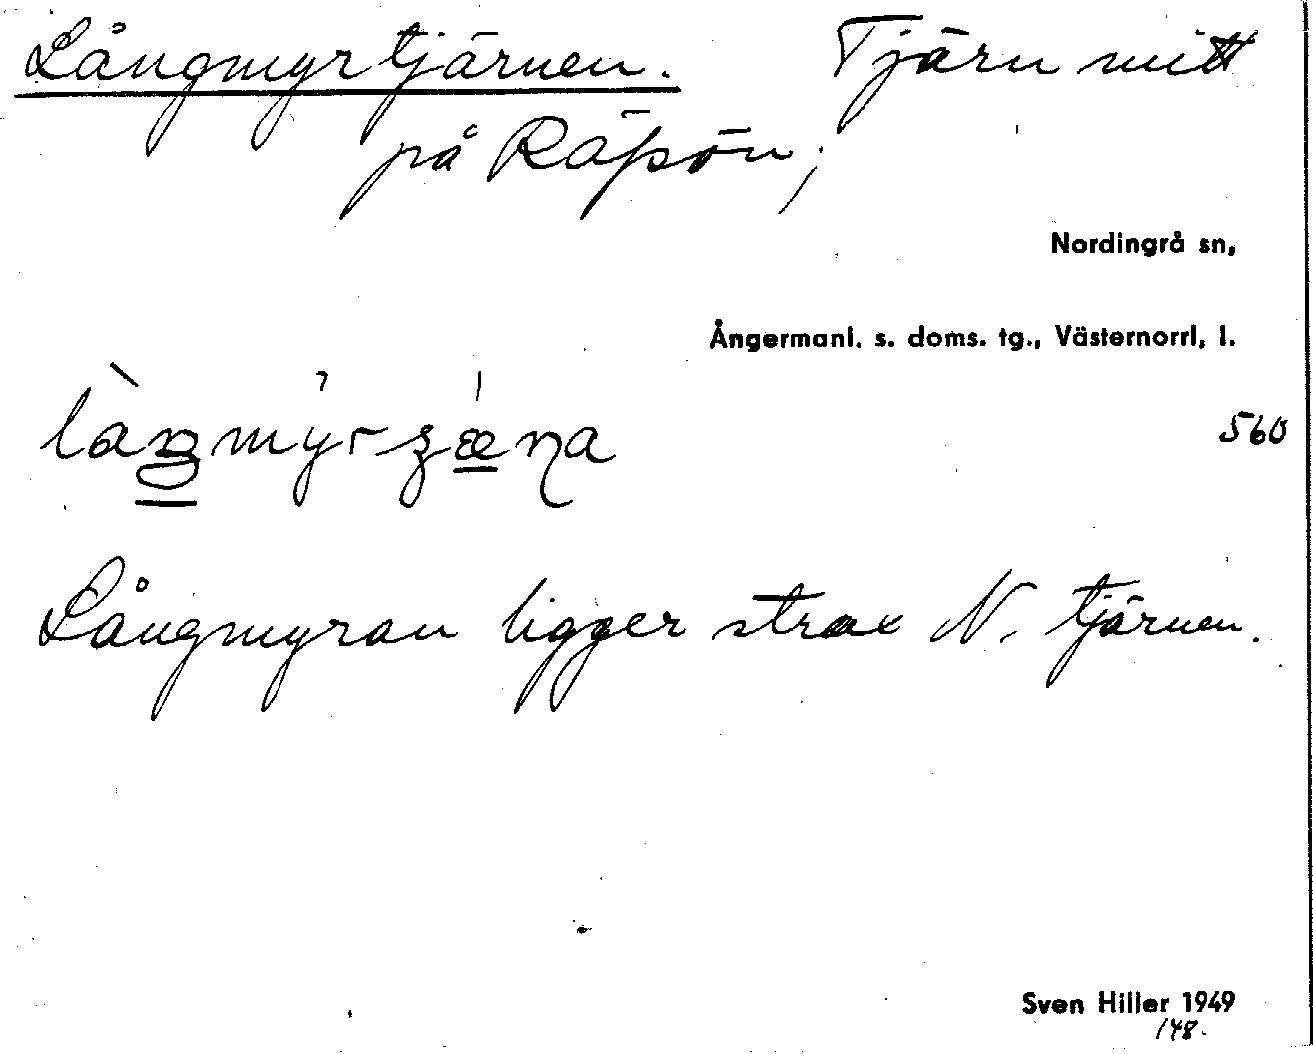 Långmyrtjärnen. Tjärn mitt
på Räpön;
Nordingrå sn,
Ångermanl. s. doms. tg., Västernorrl. l.
560
Långmyran ligger strax N. tjärnen.
Sven Hiller 1949
148.